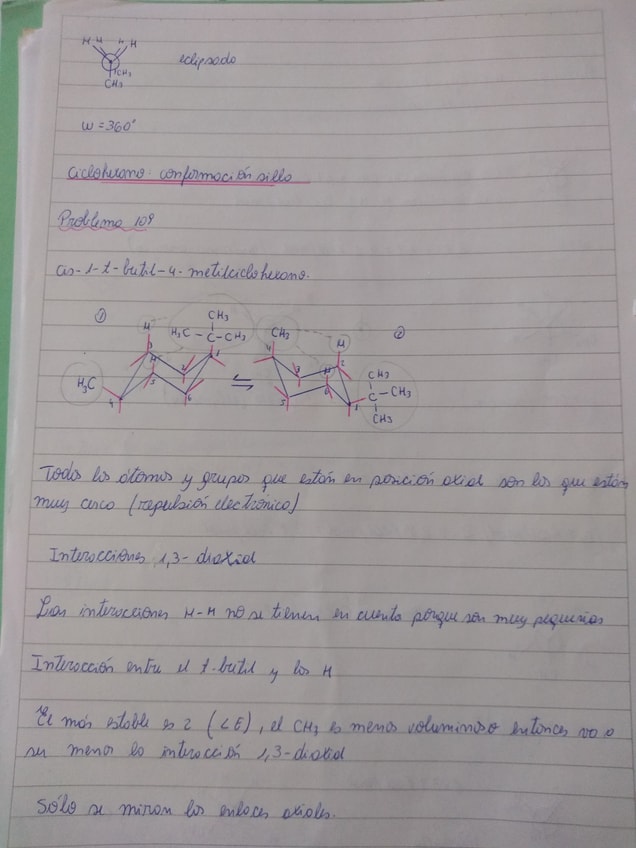 H H H H
eclipsado
CH3
CH3
w = 360°
Ciclohexano: conformación silla
Problema 109
cis-1-t-butil-4-metilciclohexano.
① CH3 ②
H H3C-C-CH3 CH3 H
3 1 4 2
H 2 3 H CH3
H3C 5 6 C-CH3
4 6 5 1 CH3
Todos los átomos y grupos que están en posición axial son los que están
muy cerca (repulsión electrónica)
Interacciones 1,3-diaxial
Las interacciones H-H no se tienen en cuenta porque son muy pequeñas
Interacción entre el t-butil y los H
El más estable es 2 (<E), el CH3 es menos voluminoso entonces va a
ser menos la interacción 1,3-diaxial
Sólo se miran los enlaces axiales.